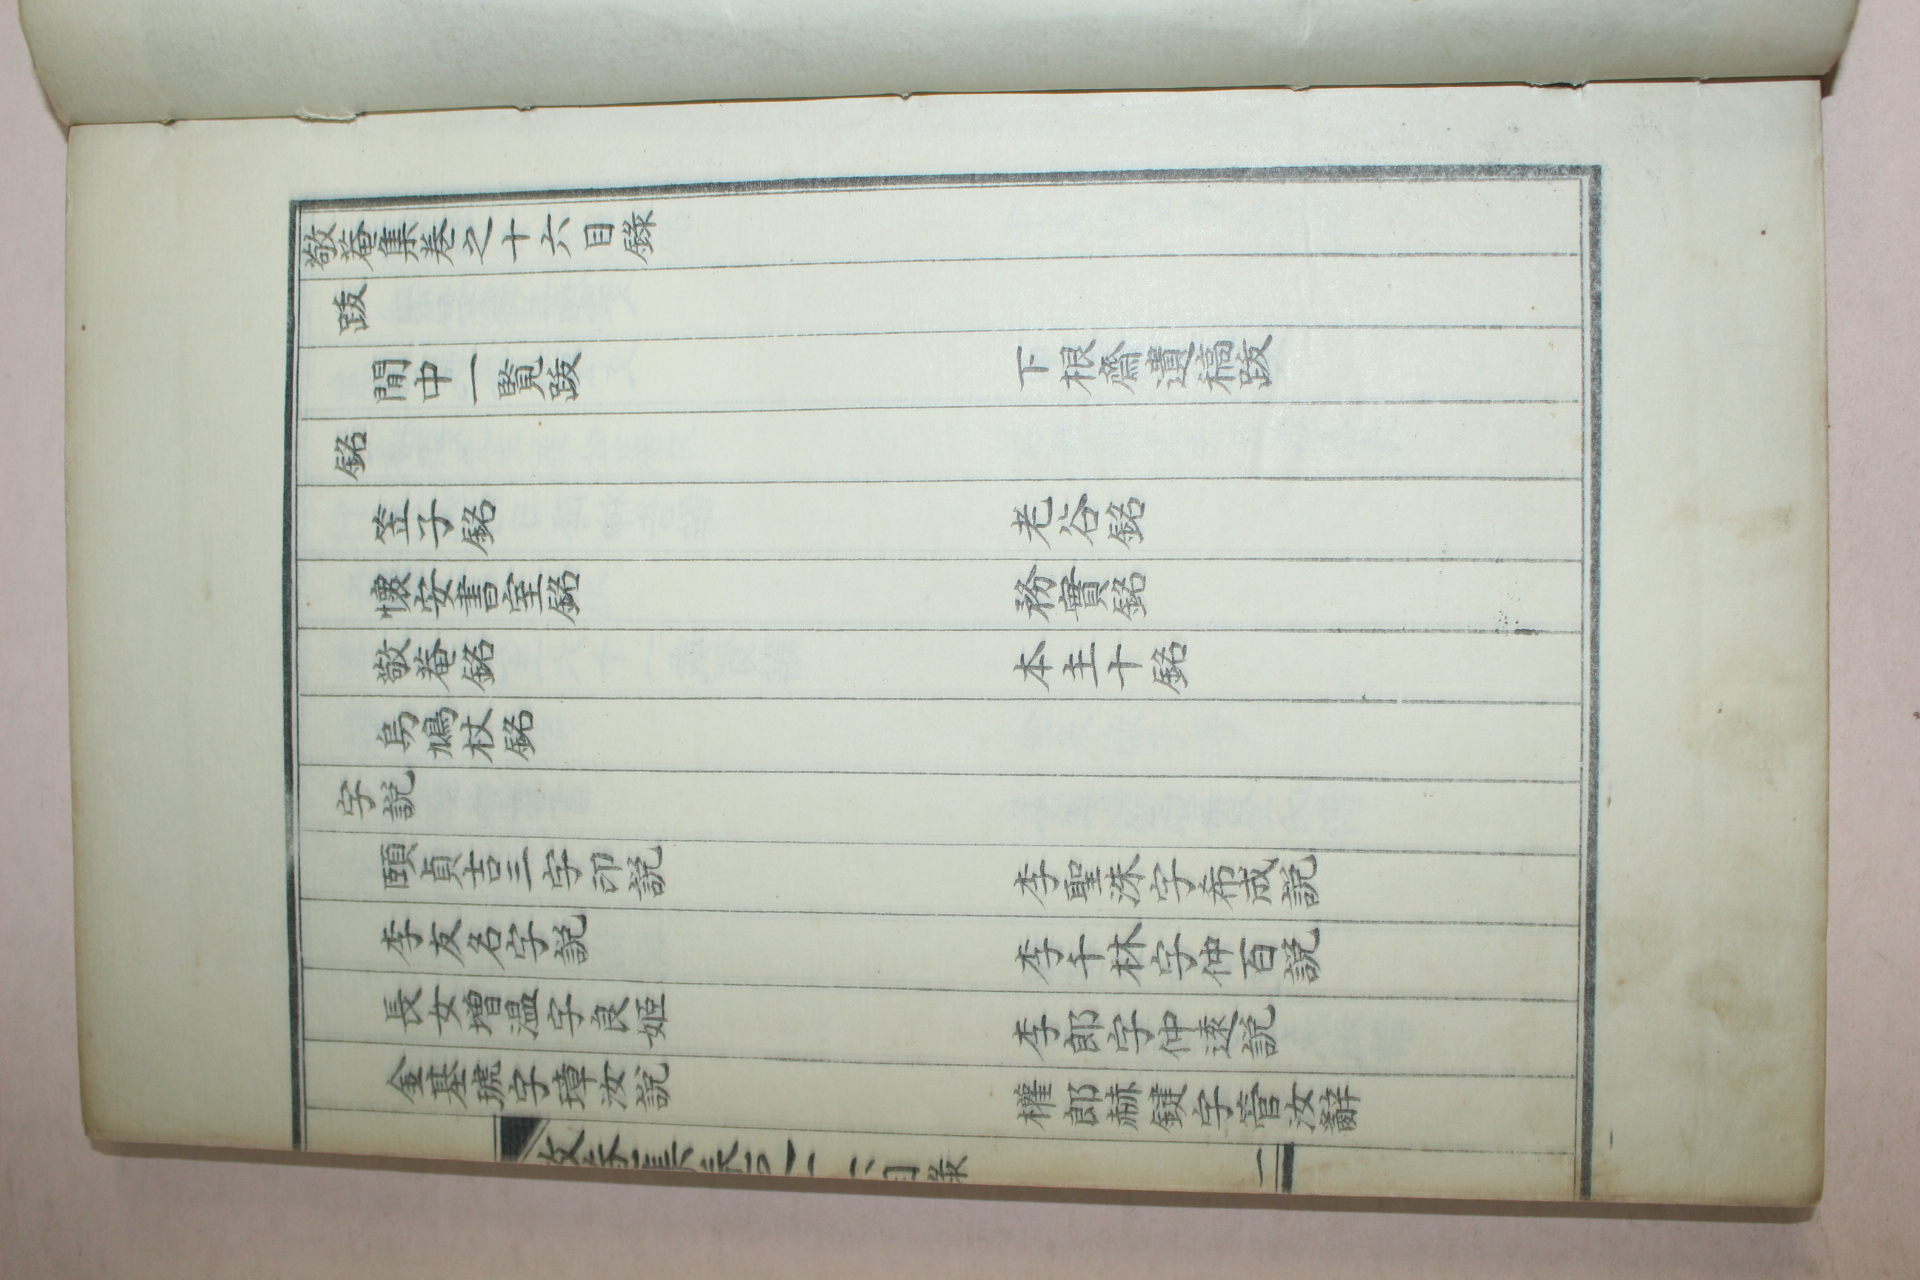 敬菴集卷之十六目錄
跋
閒中一覽跋　下根齋遺稿跋
銘
笠子銘　老谷銘
懷安書室銘　務實銘
敬菴銘　本主十銘
烏鳩杖銘
字說
頤貞吉三字印說　李聖洙字希成說
李友名字說　李千林字仲百說
長女增溫字良姬　李郎字仲遠說
金基琥字璋汝說　權郎赫鍵字管汝辭
敬菴集卷之十六目錄　一